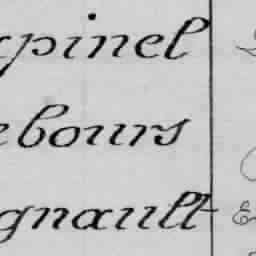 pinel
ebours
gnault